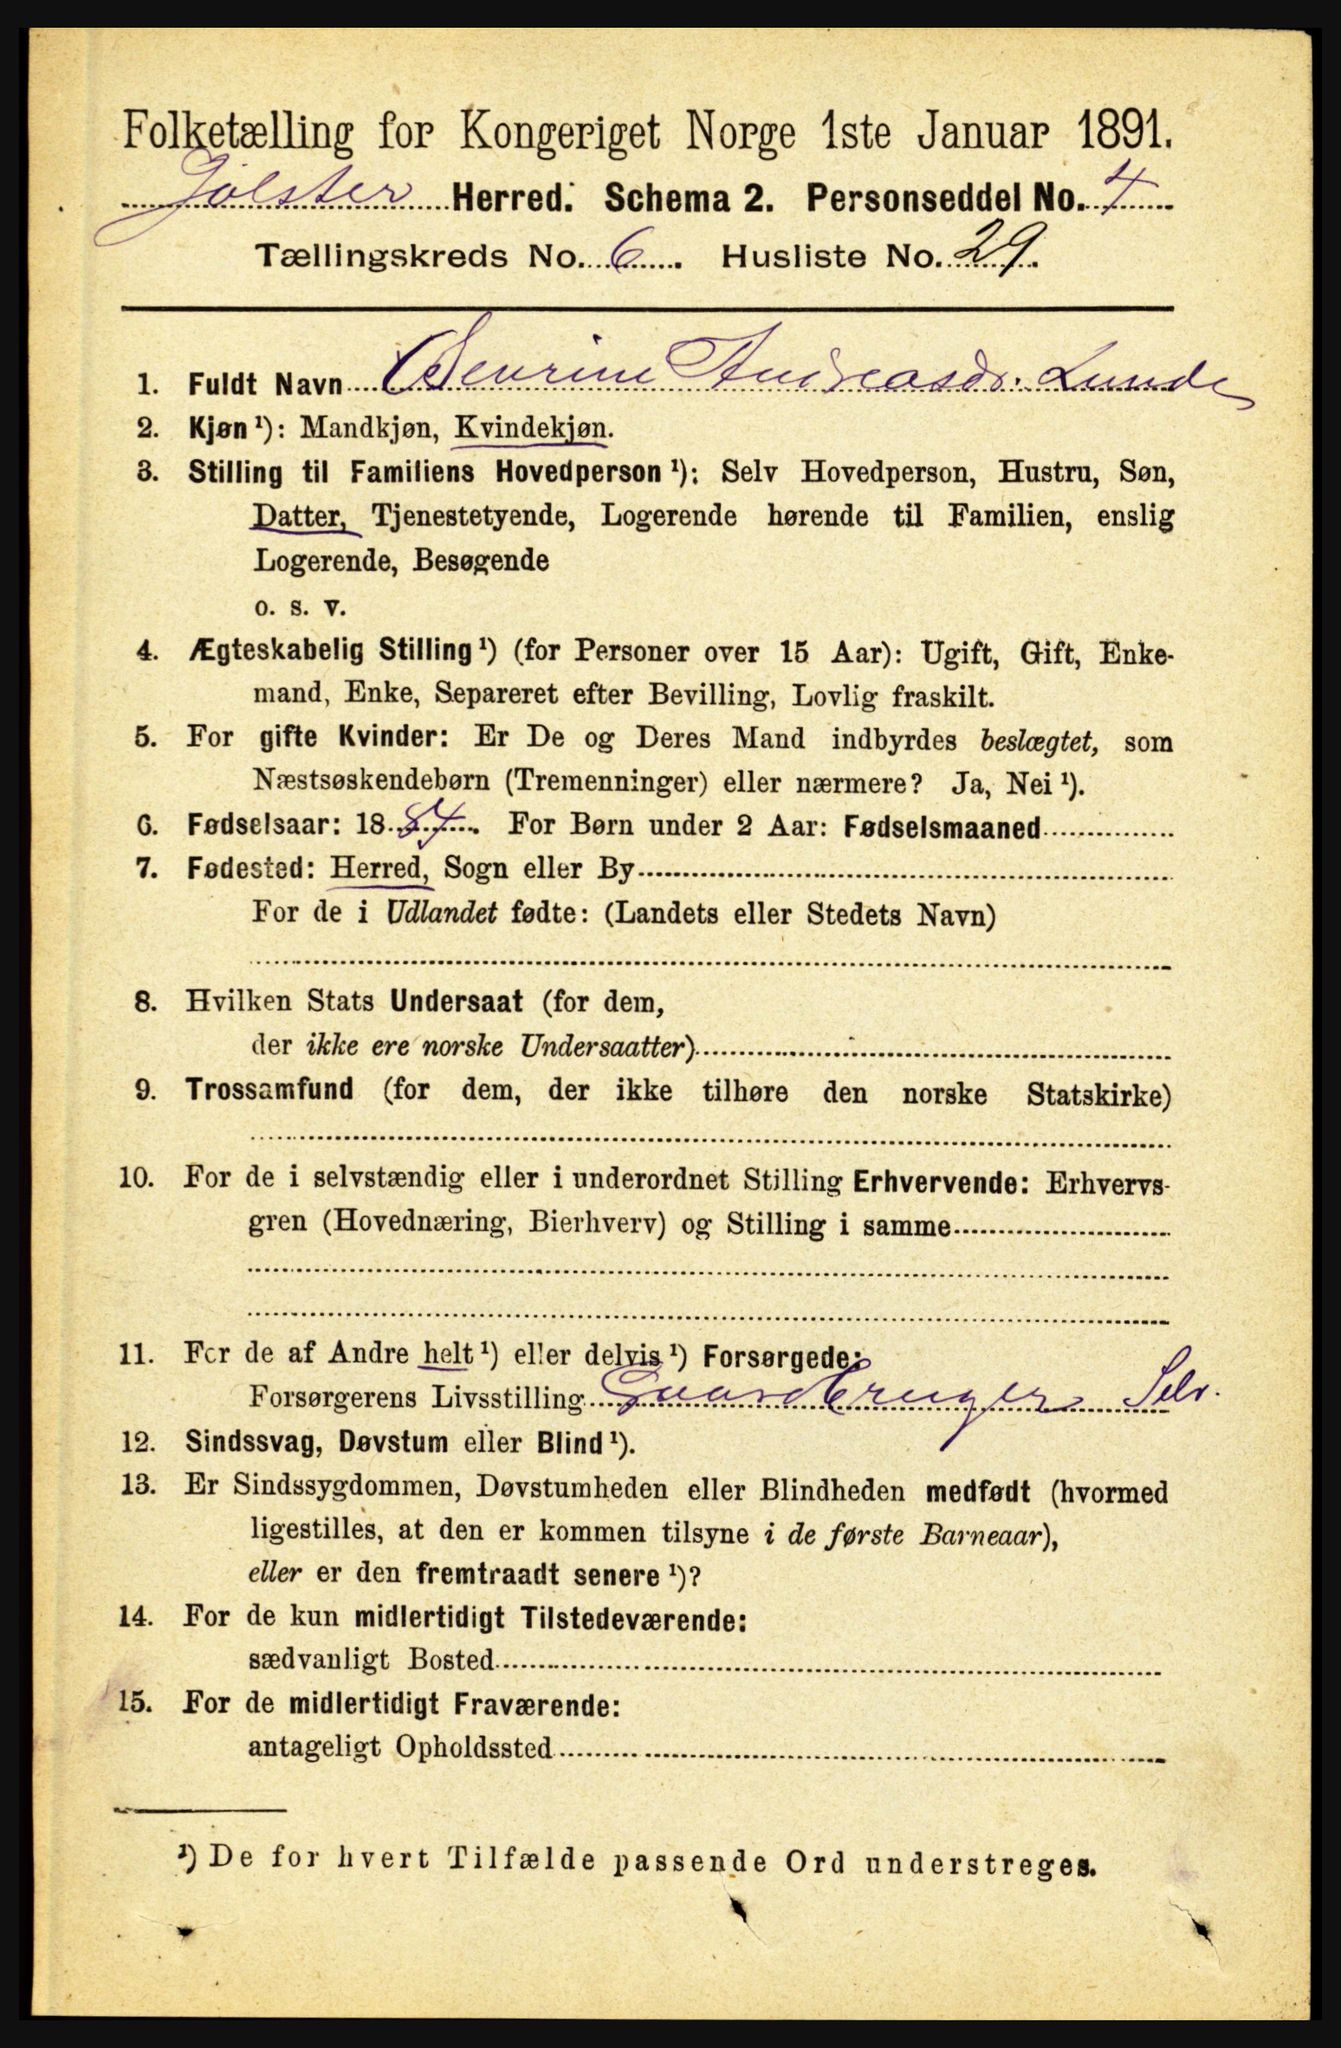 Folketælling for Kongeriget Norge 1ste Januar 1891.
Jølster Herred. Schema 2. Personseddel No. 4
Tællingskreds No. 6. Husliste No. 29.
1. Fuldt Navn Sevrine Andreasdr. Lunde
2. Kjøn ¹): Mandkjøn, Kvindekjøn.
3. Stilling til Familiens Hovedperson ¹): Selv Hovedperson, Hustru, Søn,
Datter, Tjenestetyende, Logerende hørende til Familien, enslig
Logerende, Besøgende
o. s. v.
4. Ægteskabelig Stilling ¹) (for Personer over 15 Aar): Ugift, Gift, Enke-
mand, Enke, Separeret efter Bevilling, Lovlig fraskilt.
5. For gifte Kvinder: Er De og Deres Mand indbyrdes beslægtet, som
Næstsøskendebørn (Tremenninger) eller nærmere? Ja, Nei ¹).
6. Fødselsaar: 1884. For Børn under 2 Aar: Fødselsmaaned
7. Fødested: Herred, Sogn eller By
For de i Udlandet fødte: (Landets eller Stedets Navn)
8. Hvilken Stats Undersaat (for dem,
der ikke ere norske Undersaatter)
9. Trossamfund (for dem, der ikke tilhøre den norske Statskirke)
10. For de i selvstændig eller i underordnet Stilling Erhvervende: Erhvervs-
gren (Hovednæring, Bierhverv) og Stilling i samme
11. For de af Andre helt ¹) eller delvis ¹) Forsørgede:
Forsørgerens Livsstilling Gaardbruger Selv.
12. Sindssvag, Døvstum eller Blind ¹).
13. Er Sindssygdommen, Døvstumheden eller Blindheden medfødt (hvormed
ligestilles, at den er kommen tilsyne i de første Barneaar),
eller er den fremtraadt senere ¹)?
14. For de kun midlertidigt Tilstedeværende:
sædvanligt Bosted
15. For de midlertidigt Fraværende:
antageligt Opholdssted
¹) De for hvert Tilfælde passende Ord understreges.